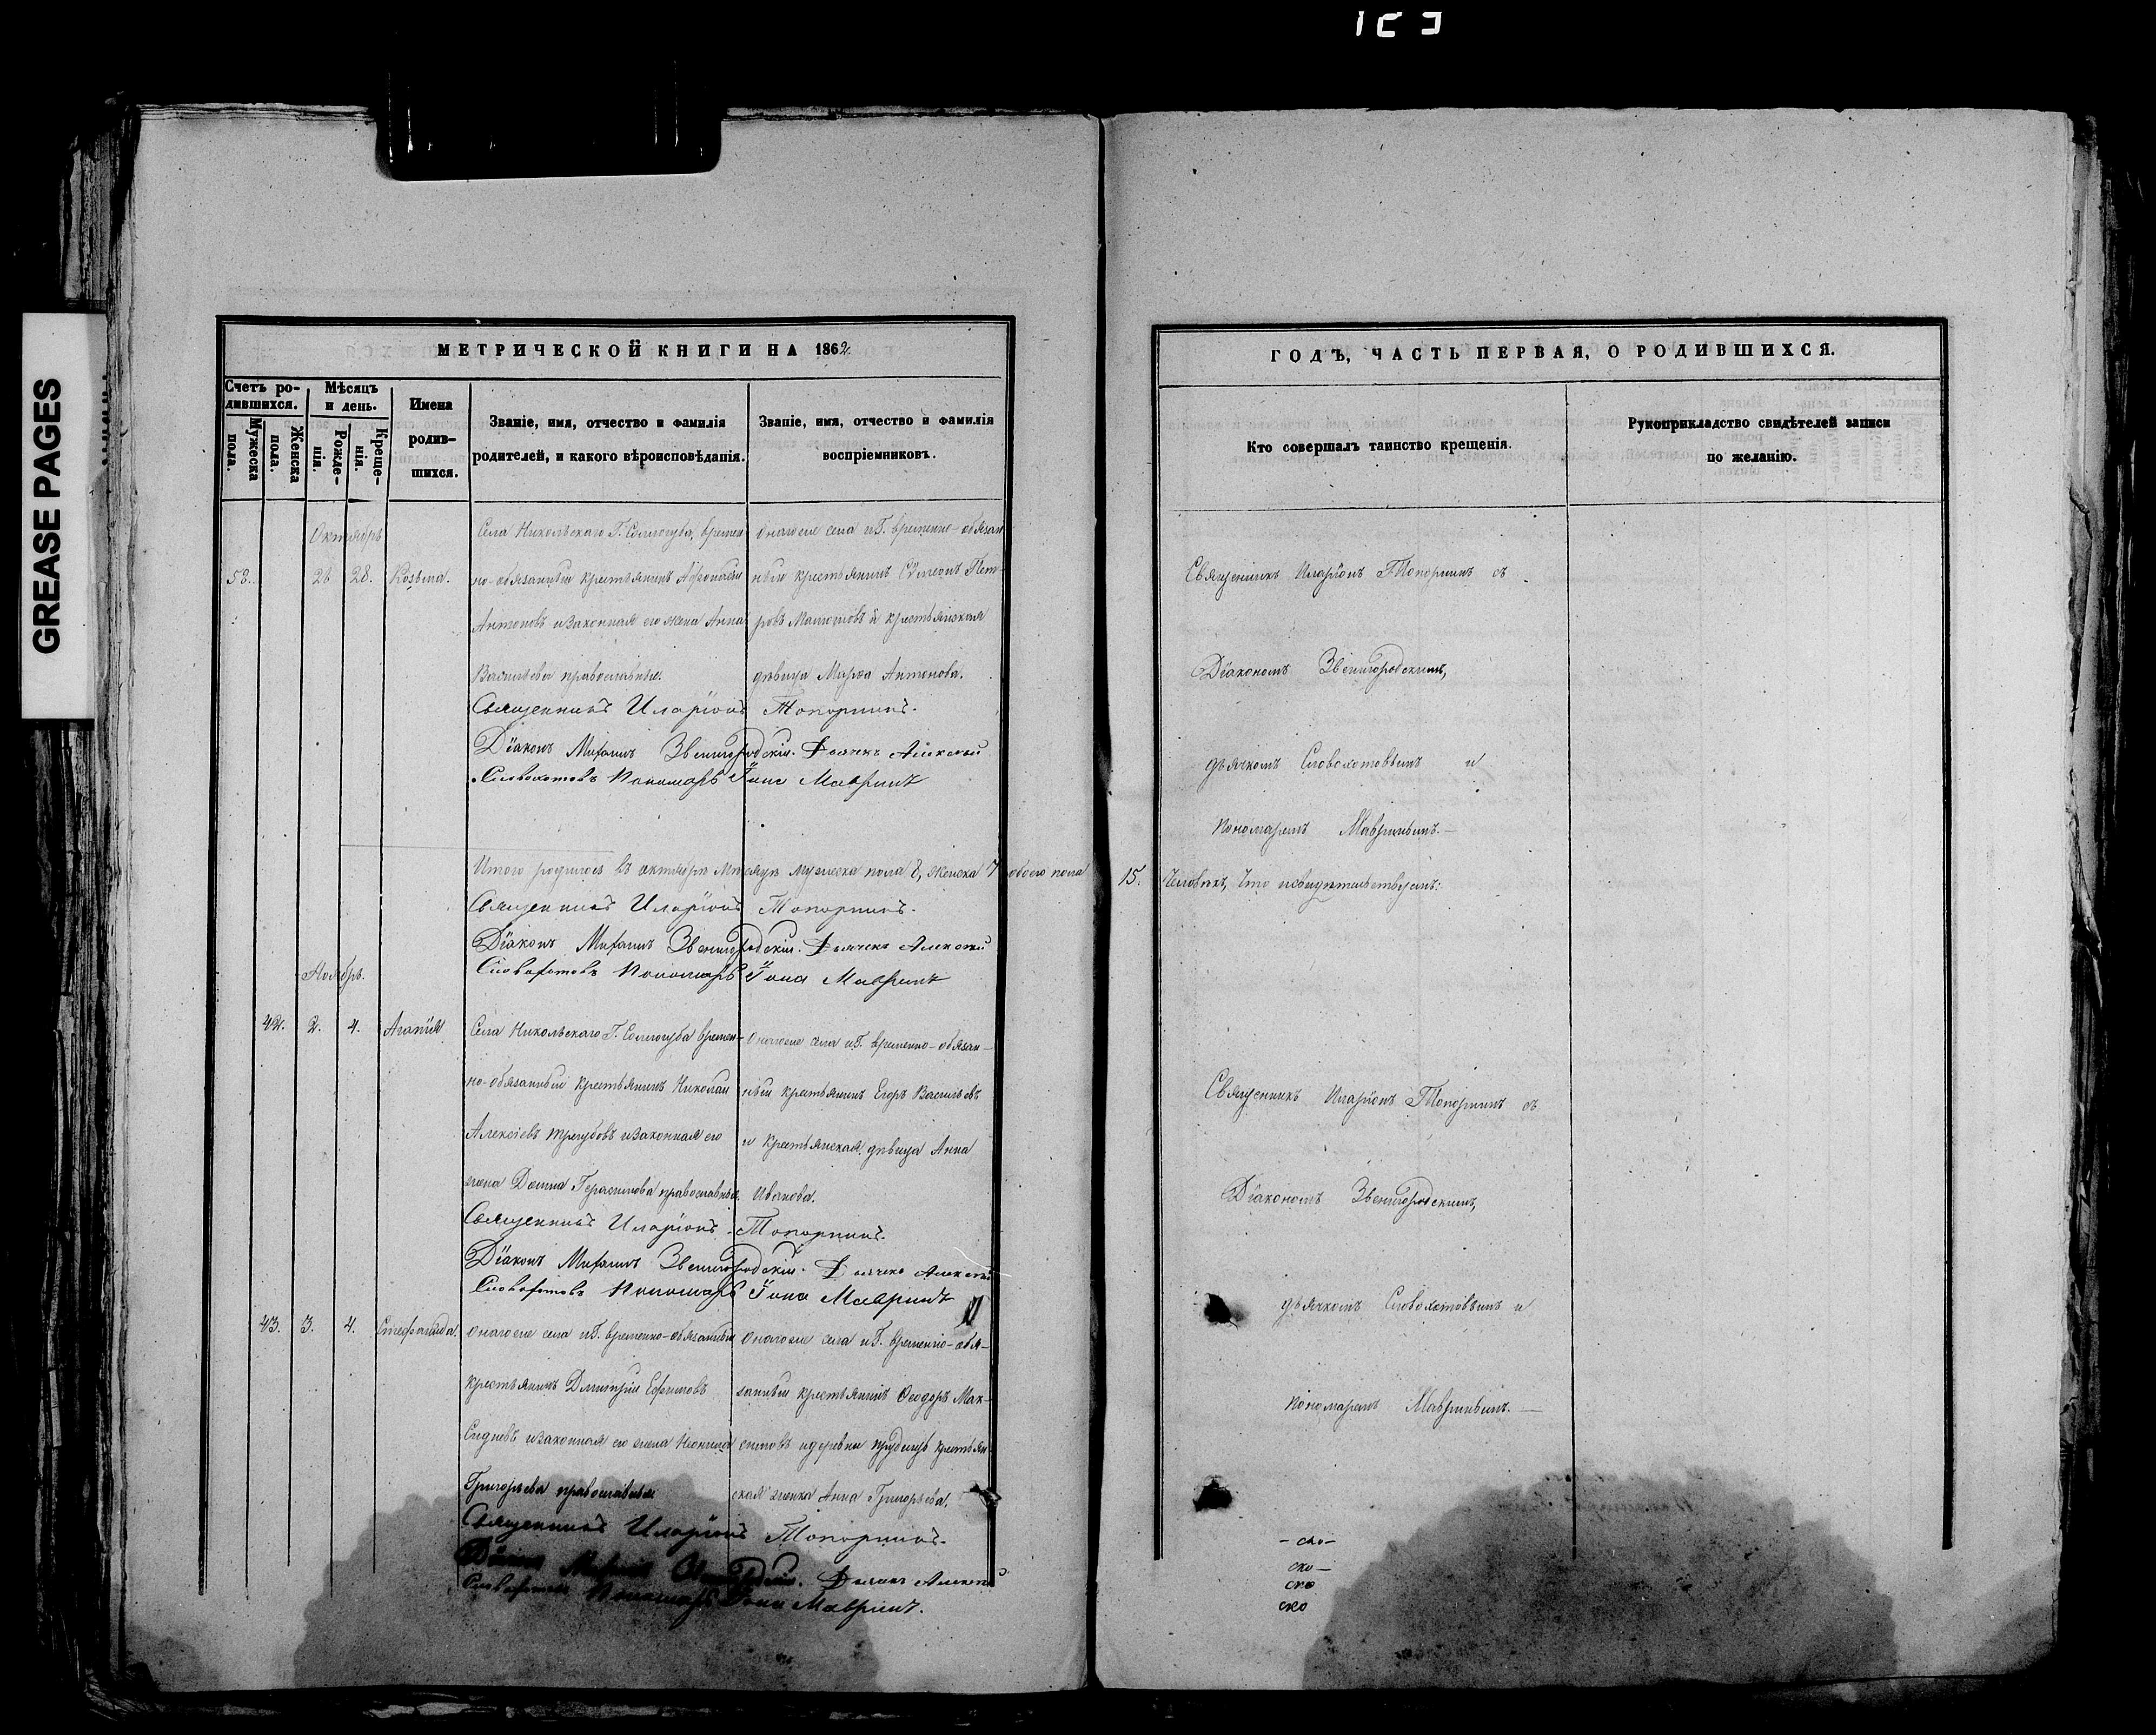 GREASE PAGES
МЕТРИЧЕСКОЙ КНИГИ НА 1862
Счетъ ро-
дившихся.
Мѣсяцъ
и день.
Имена
родив-
шихся.
Мужеска
пола.
Женска
пола.
Рожде-
нія.
Креще-
нія.
Званіе, имя, отчество и фамилія
родителей, и какого вѣроисповѣданія.
Званіе, имя, отчество и фамилія
воспріемниковъ.
Октябрь
58. 26 28. Козьма.
Села Никольскаго Г. Соллогуба, времен
но-обязанный крестьянинъ Афонасій
Антоновъ и законная его жена Анна
Васильева православные.
Онагоже села и Г. временно-обязан
ный крестьянинъ Сѵмеонъ Пет-
ровъ и крестьянская
дѣвица Марѳа Антонова.
Священникъ Иларіонъ Топорнинъ.
Діаконъ Михаилъ Звенигородскій. Дьячекъ Алексѣй
Словохотовъ Пономарь Іона Мавринъ
Итого родилось въ октябрѣ мѣсяцѣ мужеска пола 8, женска 7 обоего пола
Священникъ Иларіонъ Топорнинъ.
Діаконъ Михаилъ Звенигородскій. Дьячекъ Алексѣй
Словохотовъ Пономарь Іона Мавринъ
Ноябрь.
42. 2. 4. Агапія
Села Никольскаго Г. Соллогуба времен-
но-обязанный крестьянинъ Николай
Алексіевъ Трегубовъ и законная его
жена Домна Герасимова православные.
Онагоже села и Г. временно-обязан-
ный крестьянинъ Егоръ Васильевъ
и крестьянская дѣвица Анна
Иванова.
Священникъ Иларіонъ Топорнинъ.
Діаконъ Михаилъ Звенигородскій. Дьячекъ Алексѣй
Словохотовъ Пономарь Іона Мавринъ
43. 3. 4. Стефанида.
Онагоже села и Г. временно-обязанный
крестьянинъ Димитрій Ефимовъ
и законная его жена Неонила
Григорьева православные
Онагоже села и Г. временно-обя-
занный крестьянинъ Ѳеодоръ Мак-
симовъ и деревни крестьян-
ская женка Анна Григорьева.
Священникъ Иларіонъ Топорнинъ.
Діаконъ Михаилъ Звенигородскій. Дьячекъ Алексѣй
Словохотовъ Пономарь Іона Мавринъ.
ГОДЪ, ЧАСТЬ ПЕРВАЯ, О РОДИВШИХСЯ.
Кто совершалъ таинство крещенія.
Рукоприкладство свидѣтелей записи
по желанію.
Священникъ Иларіонъ Топорнинъ съ
Діакономъ Звенигородскимъ,
дьячкомъ Словохотовымъ и
Пономаремъ Мавринымъ.
15. Человѣкъ, что и свидѣтельствуемъ:
Священникъ Иларіонъ Топорнинъ съ
Діакономъ Звенигородскимъ,
дьячкомъ Словохотовымъ и
Пономаремъ Мавринымъ.